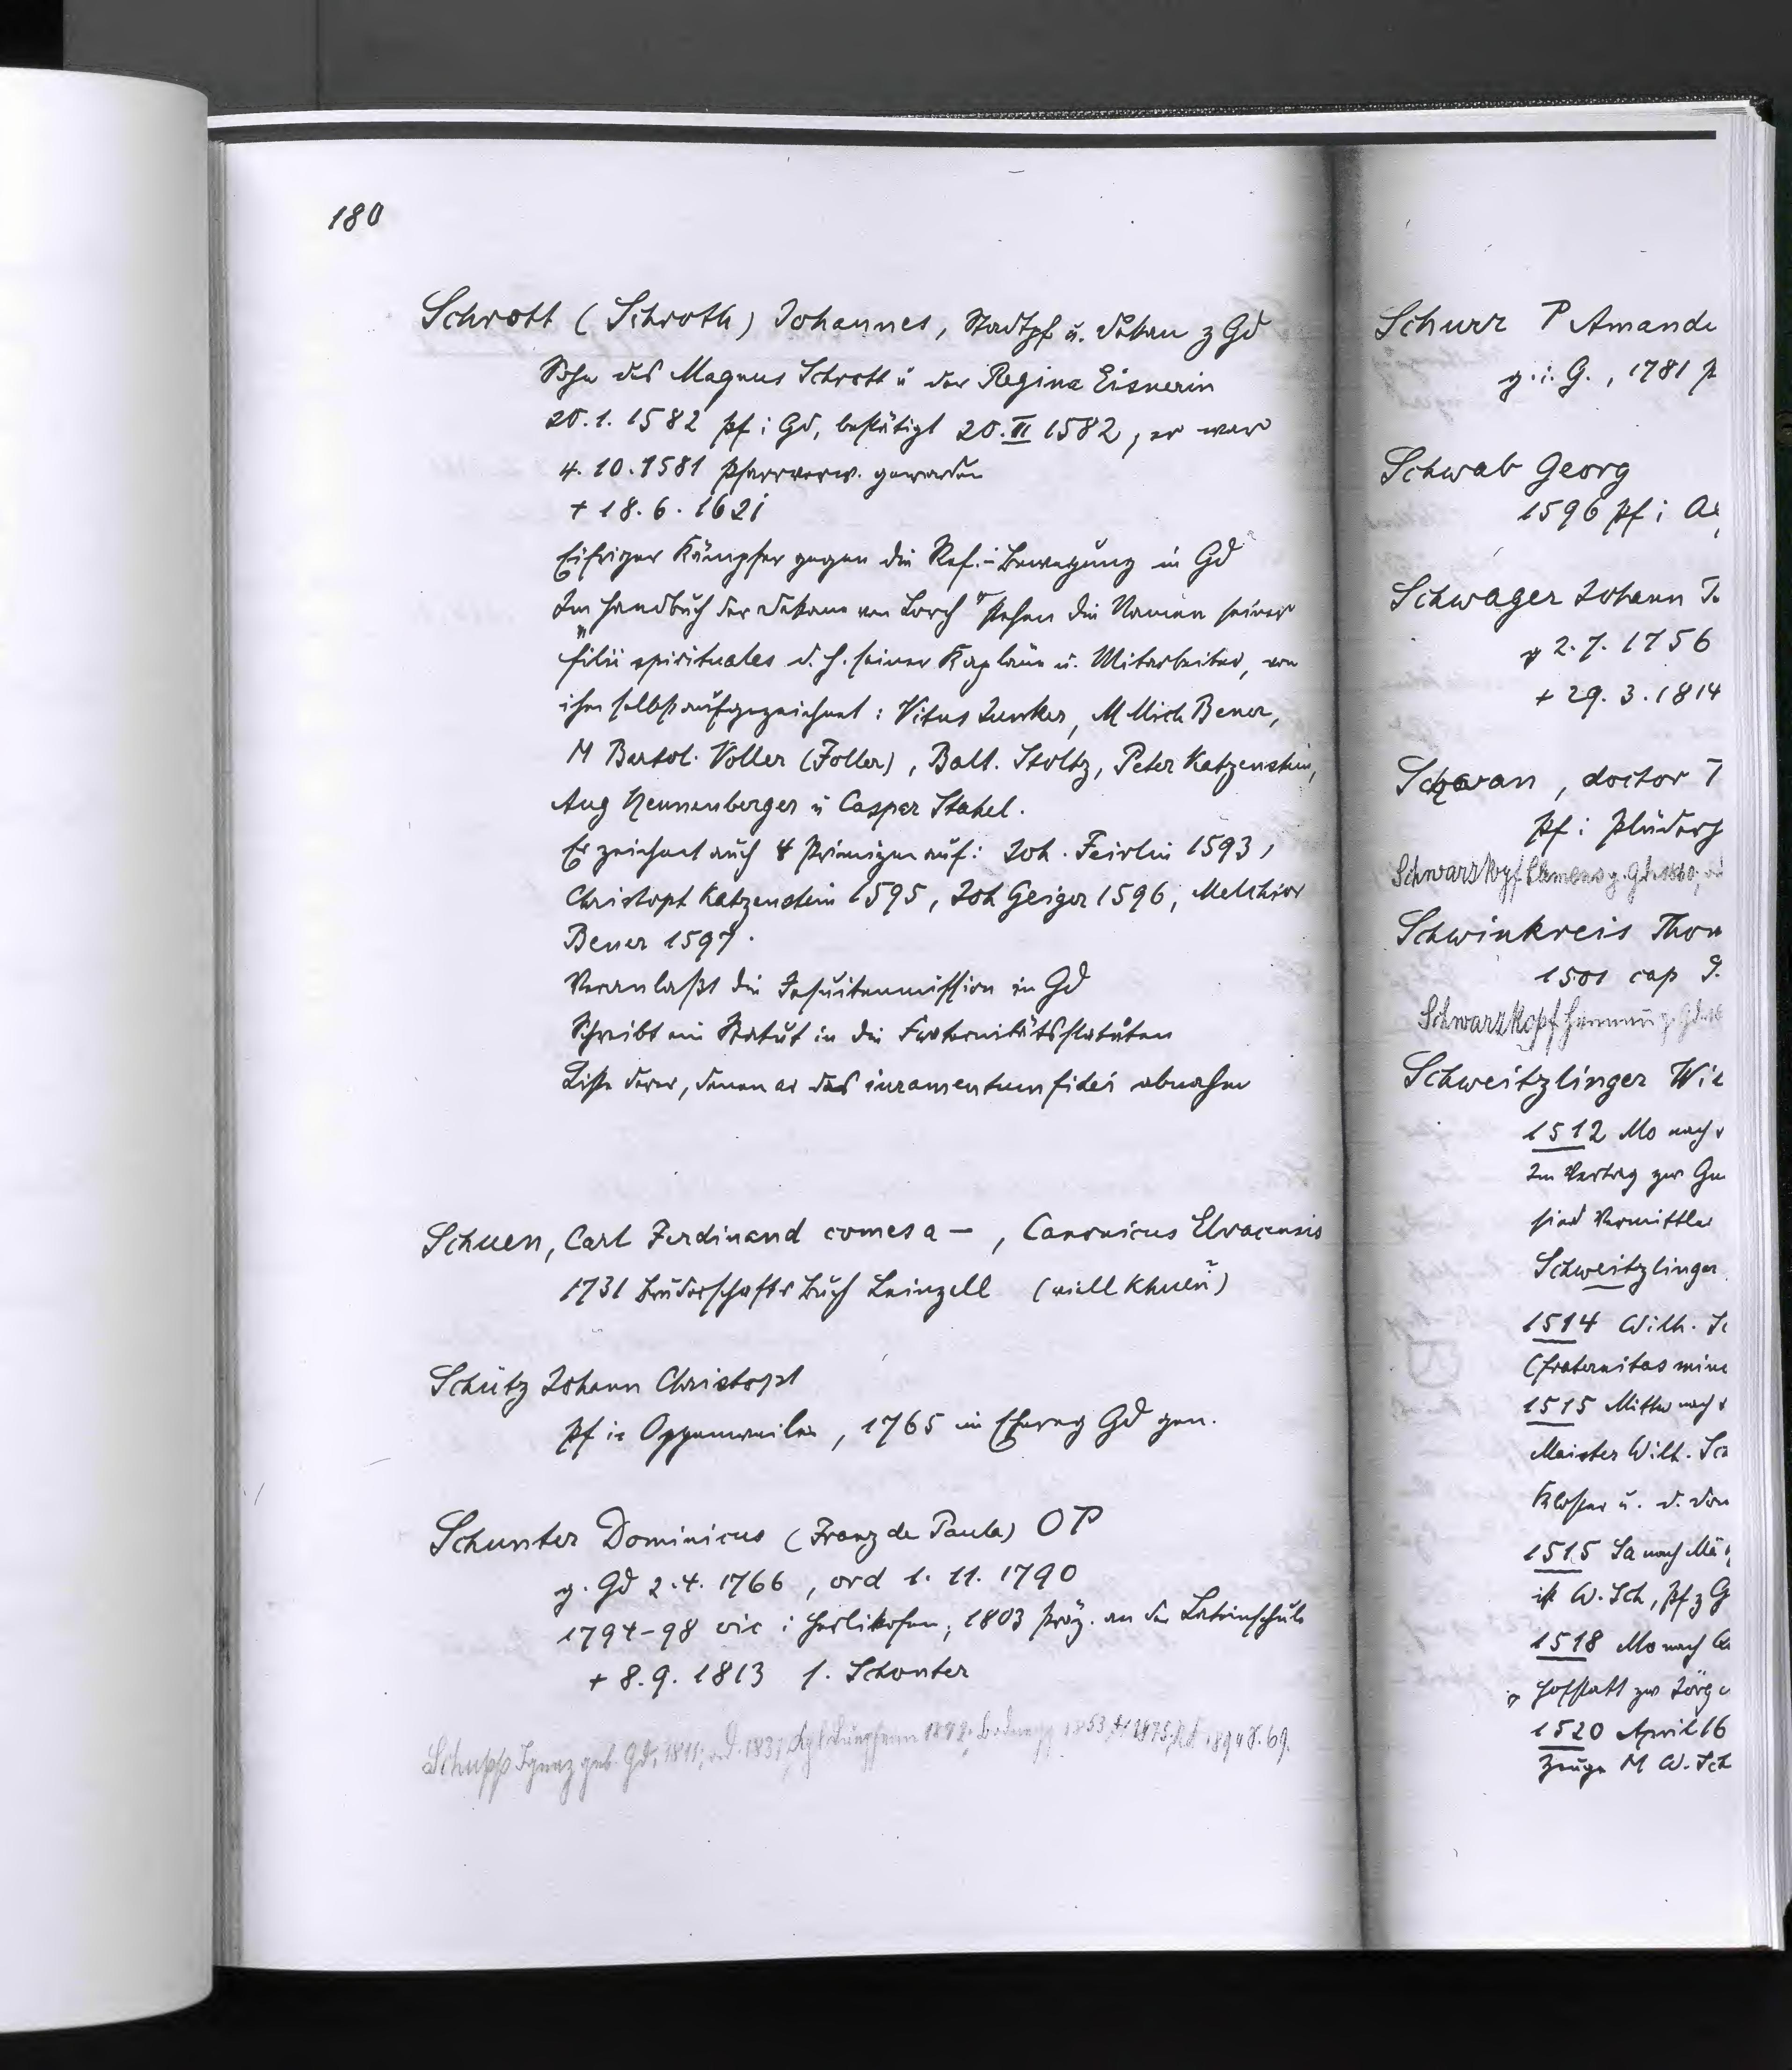 180
Schrott (Schroth) Johannes, Stadtpf u. Dekan z Gd
Sohn des Magnus Schrott u der Regina Eisnerin
20.1.1582 Pf i Gd, bestätigt 20.II 1582, er war
4.10.1581 Pfarrverw. geworden
+ 18.6.1621
Eifriger Kämpfer gegen die Ref.-Bewegung in Gd
Im Handbuch der Dekane von Lorch stehen die Namen seiner
"filii spirituales d.h. seiner Kapläne u. Mitarbeiter, von
ihm selbst aufgezeichnet: Vitus Junker, M Mich Bener,
M Bartol. Voller (Foller), Balt. Stoltz, Peter Katzenstein,
Aug Hennenberger u Caspar Stahel.
Er zeichnet auch 4 Primizen auf: Joh. Feirlin 1593,
Christoph Katzenstein 1595, Joh Geiger 1596, Melchior
Bener 1597.
Veranlaßt die Jesuitenmission in Gd
Schreibt ein Statut in die Fraternitätsstatuten
Liste derer, denen er das iuramentum fidei abnahm
Schuen, Carl Ferdinand comes a –, Canonicus Elvacensis
1731 Bruderschafts Buch Leinzell (viell Khuen?)
Schütz Johann Christoph
Pf in Oppenweiler, 1765 im Eherg Gd gen.
Schunter Dominicus (Franz de Paula) OP
g. Gd 2.4.1766, ord 1.11.1790
1794-98 vic i Herlikofen, 1803 Präz. an der Lateinschule
+ 8.9.1813 s. Schonter
Schupp Ignaz geb. Gd, 1811; ord. 1837
Schurr P Amande
g.i.G., 1781 P
Schwab Georg
1596 Pf i
Schwager Johann
g 2.7.1756
+ 29.3.1814
Schwan, doctor
Pf i Plüder
Schwarzkopf Clemens g. Gd 1860,
Schwinkreis Thom
1501 cap
Schwarzkopf Hermann g. Gd
Schweitzlinger Wil
1512 Mo nach
Im Vertrag zw Gm
sind Vermittler
Schweitzlinger
1514 Wilh. Sc
(fraternitas mino
1515 Mittw nach
Meister Wilh. Sc
Kloster u. d. Dom
1515 Sa nach
ist W. Sch, Pf z G
1518 Mo nach
Hofstatt zw Jörg
1520 April 16
Zeuge M W. Sch